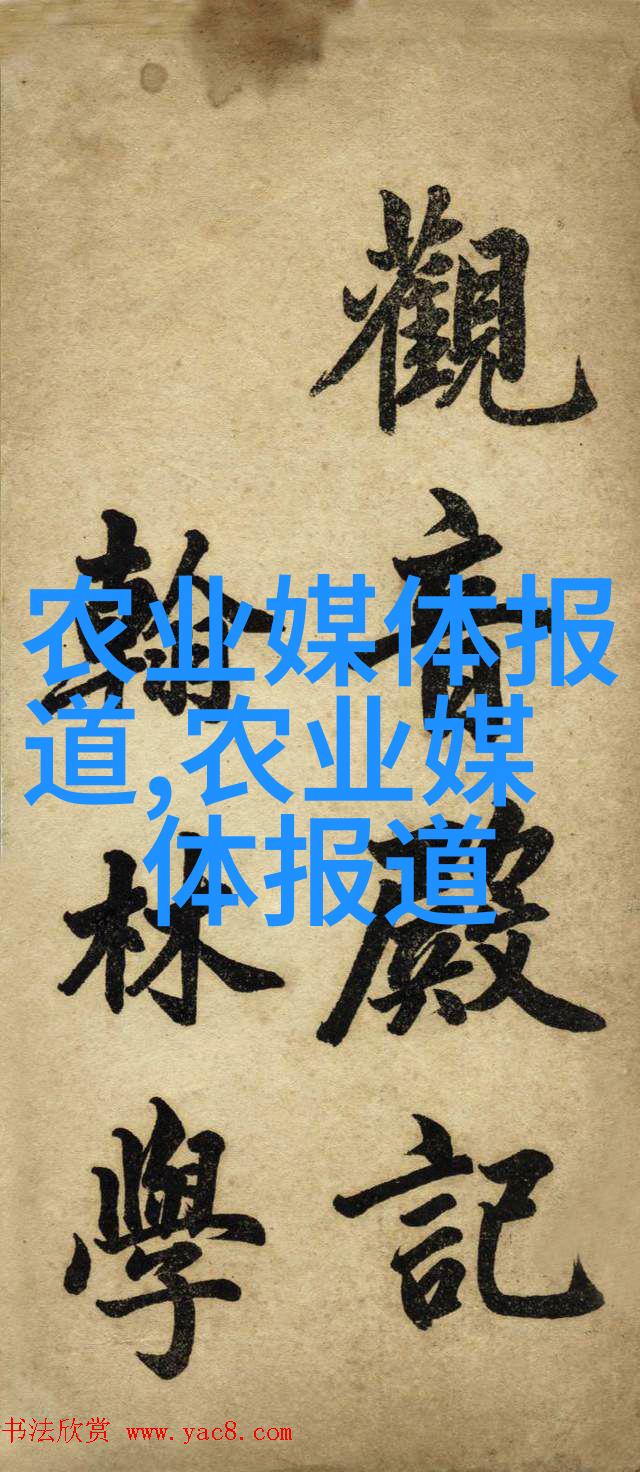 觀音殿記
翰林學
农业媒体报
道,农业媒
体报道
书法欣赏 www.yac8.com